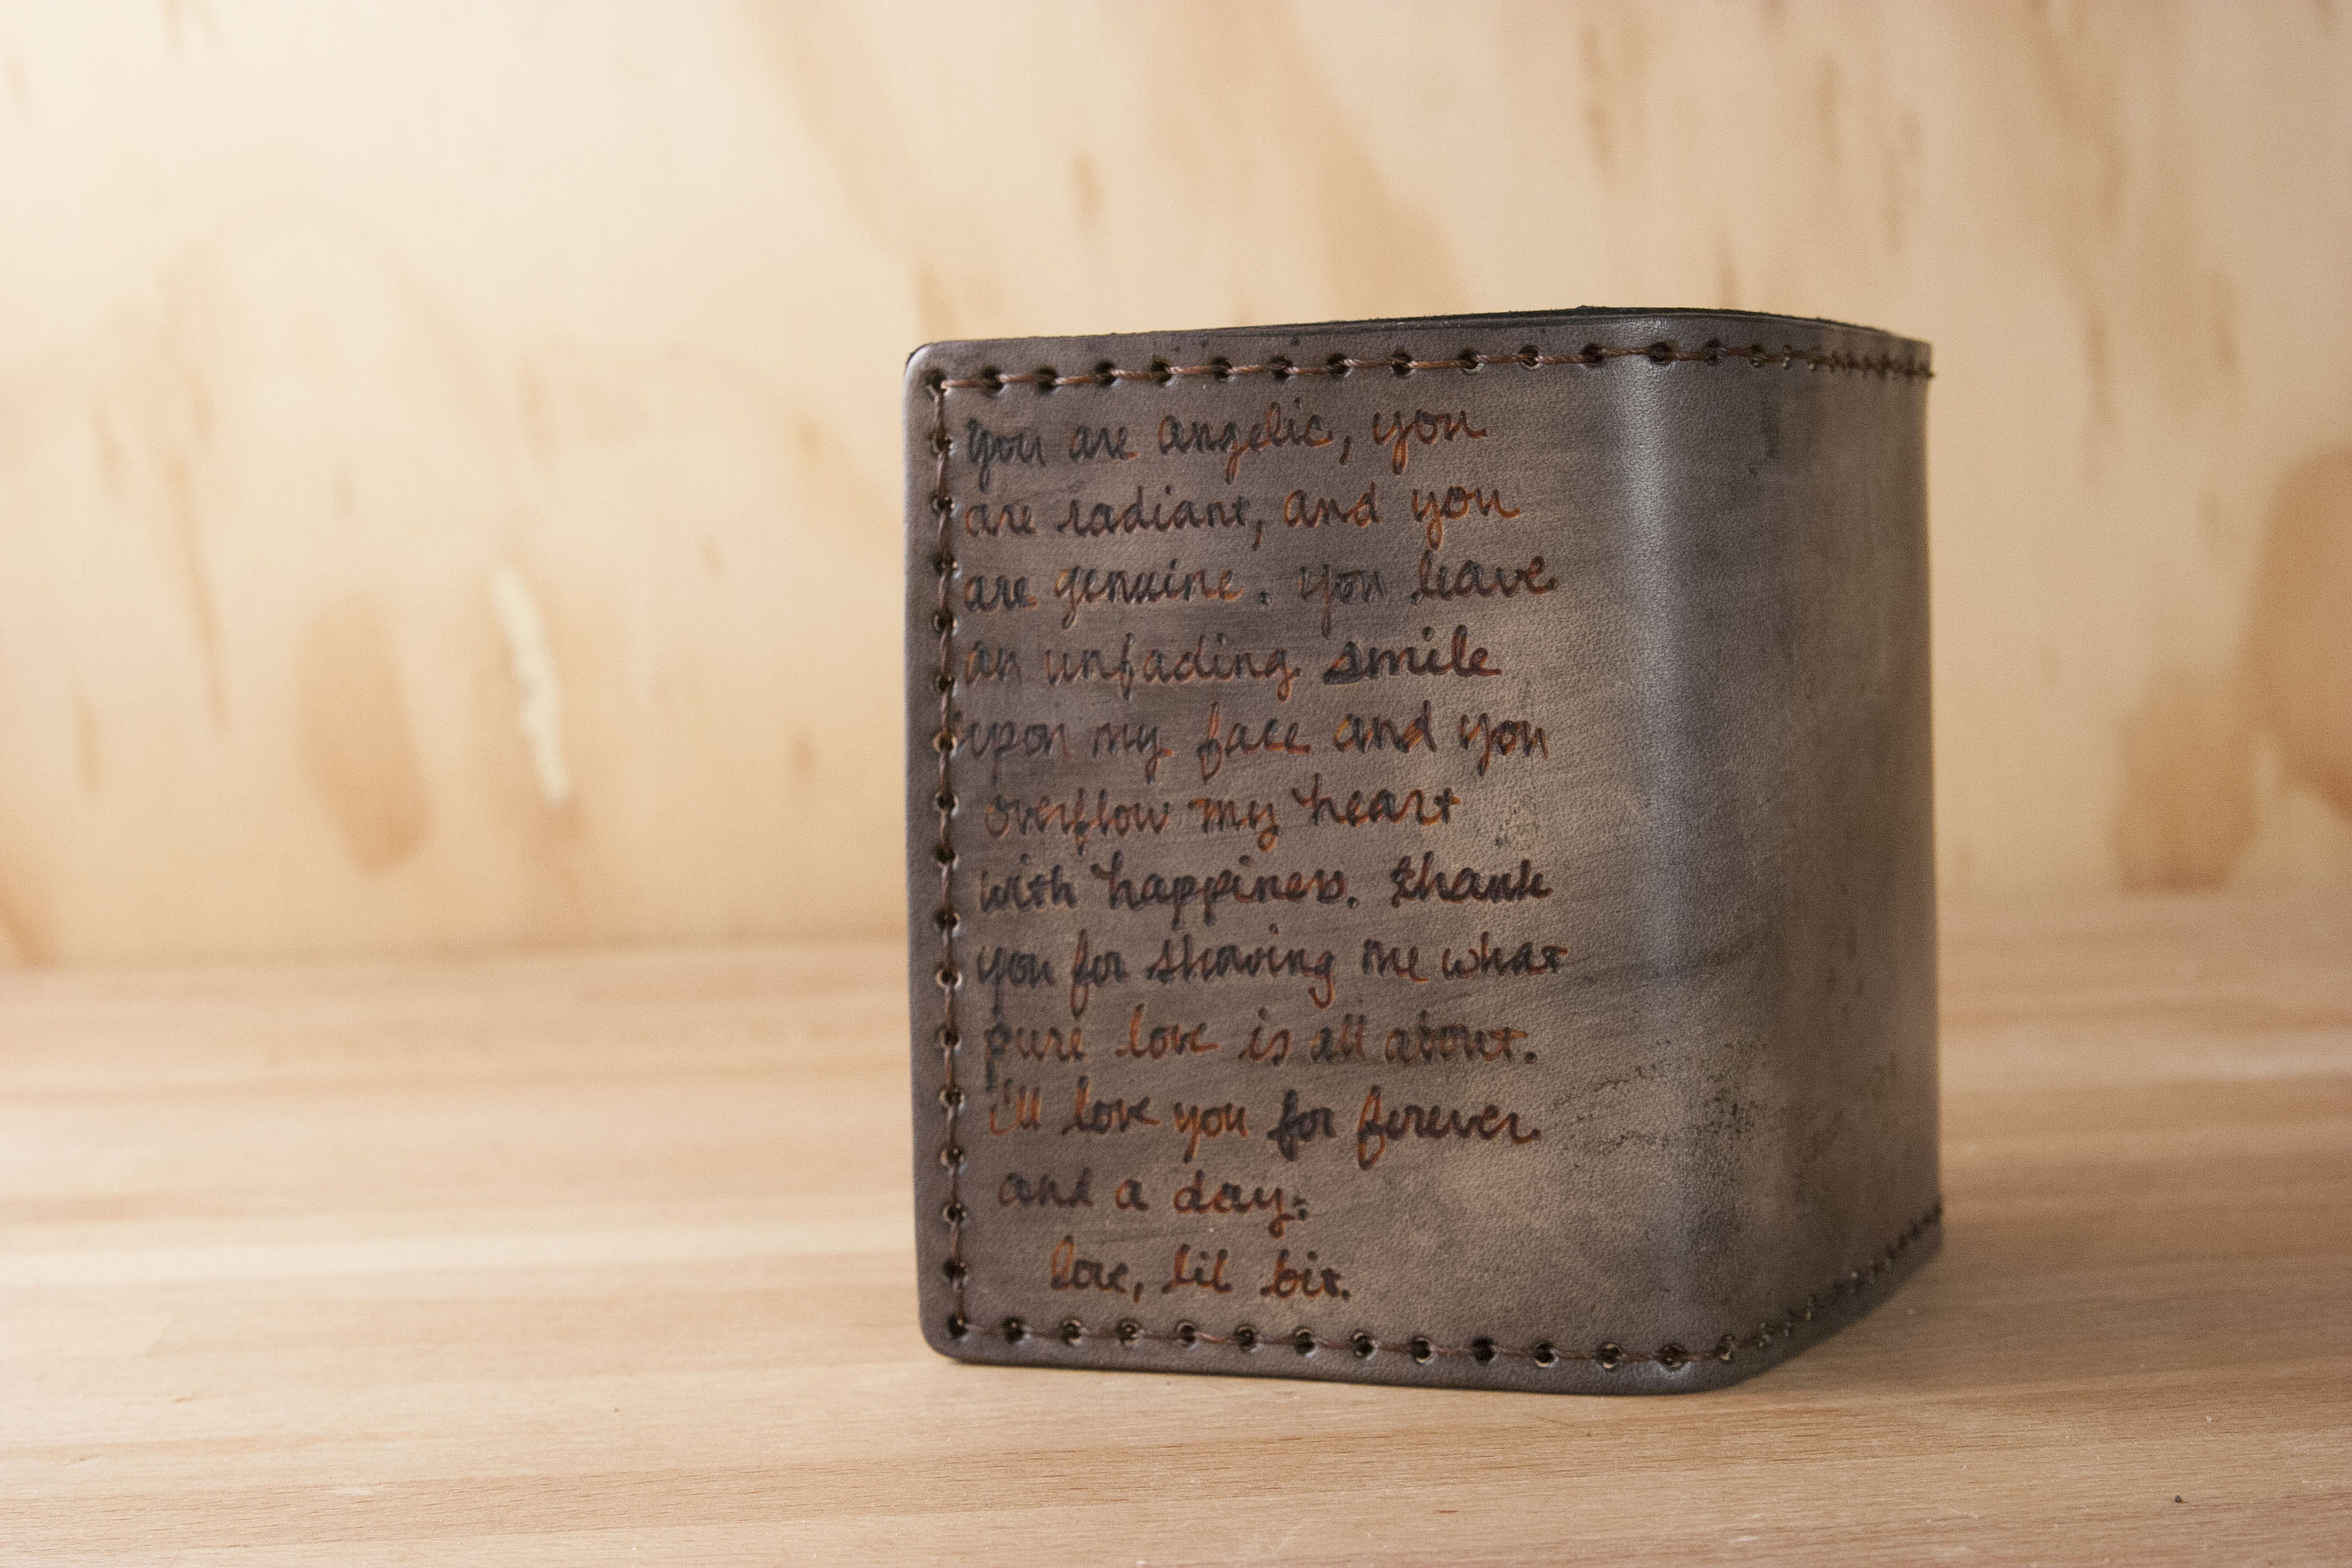 you are angelic, you
are radiant, and you
are genuine. you leave
an unfading smile
upon my face and you
overflow my heart
with happiness. thank
you for showing me what
pure love is all about.
i'll love you for forever
and a day.
love, lil bit.